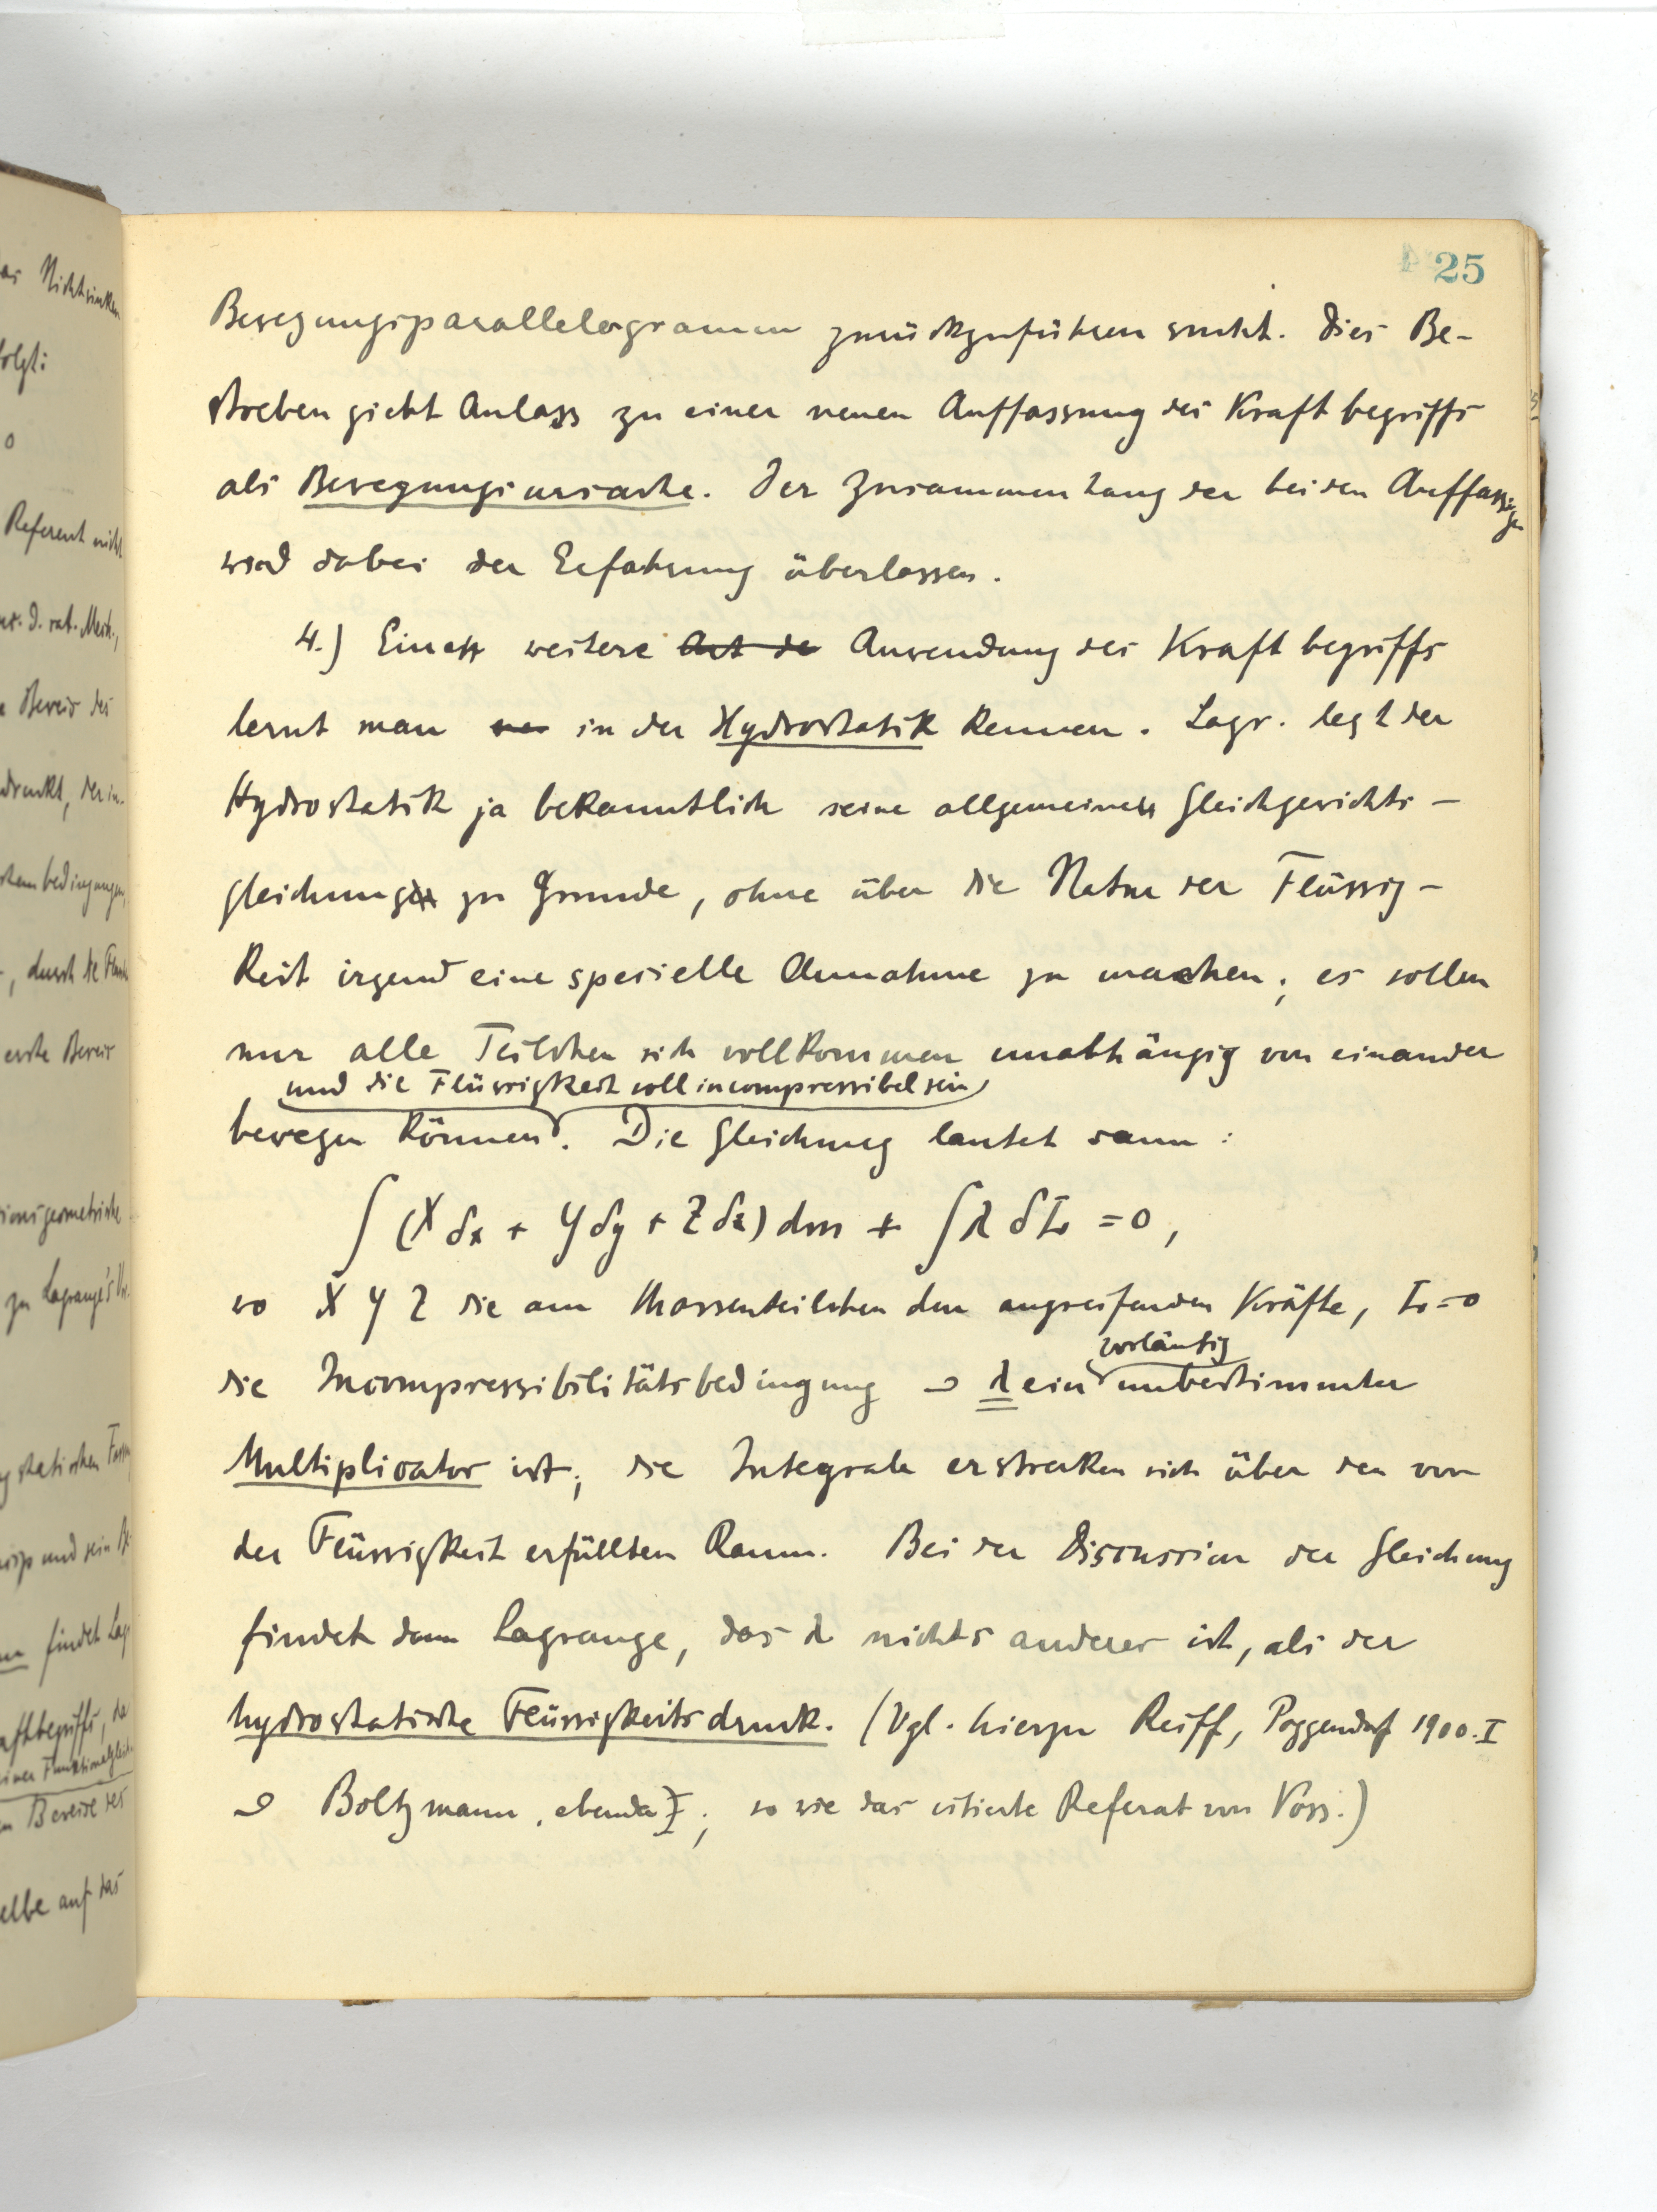 25
Bewegungsparallelogramm zurückzuführen sucht. Dies Be-
streben giebt Anlass zu einer neuen Auffassung des Kraftbegriffs
als Bewegungsursache. Der Zusammenhang der beiden Auffassungen
wird dabei der Erfahrung überlassen.
4.) Eine weitere Art de Anwendung des Kraftbegriffs
lernt man in der Hydrostatik kennen. Lagr. legt der
Hydrostatik ja bekanntlich seine allgemeine Gleichgewichts-
gleichung zu Grunde, ohne über die Natur der Flüssig-
keit irgend eine spezielle Annahme zu machen; es sollen
nur alle Teilchen sich vollkommen unabhängig von einander
und die Flüssigkeit soll incompressibel sein
bewegen können. Die Gleichung lautet dann:
∫ (X δx + Y δy + Z δz) dm + ∫ λ δL = 0,
wo X Y Z die am Massenteilchen dm angreifenden Kräfte, L=0
vorläufig
die Incompressibilitätsbedingung u λ ein unbestimmter
Multiplicator ist; die Integrale erstrecken sich über den von
der Flüssigkeit erfüllten Raum. Bei der Discussion der Gleichung
findet dann Lagrange, das λ nichts anderes ist, als der
hydrostatische Flüssigkeitsdruck. (Vgl. hierzu Reiff, Poggendorf 1900. I
u Boltzmann, ebenda I; so wie das citierte Referat von Voss.)
das Nichtsinken
folgt:
0
Referent nicht
d. rat. Mech.,
Beweis des
durch die
erste Beweis
zu Lagrange's
und sein
findet Lag
Kraftbegriffs, de
einer Funktionalgleich
Beweise des
selbe auf das